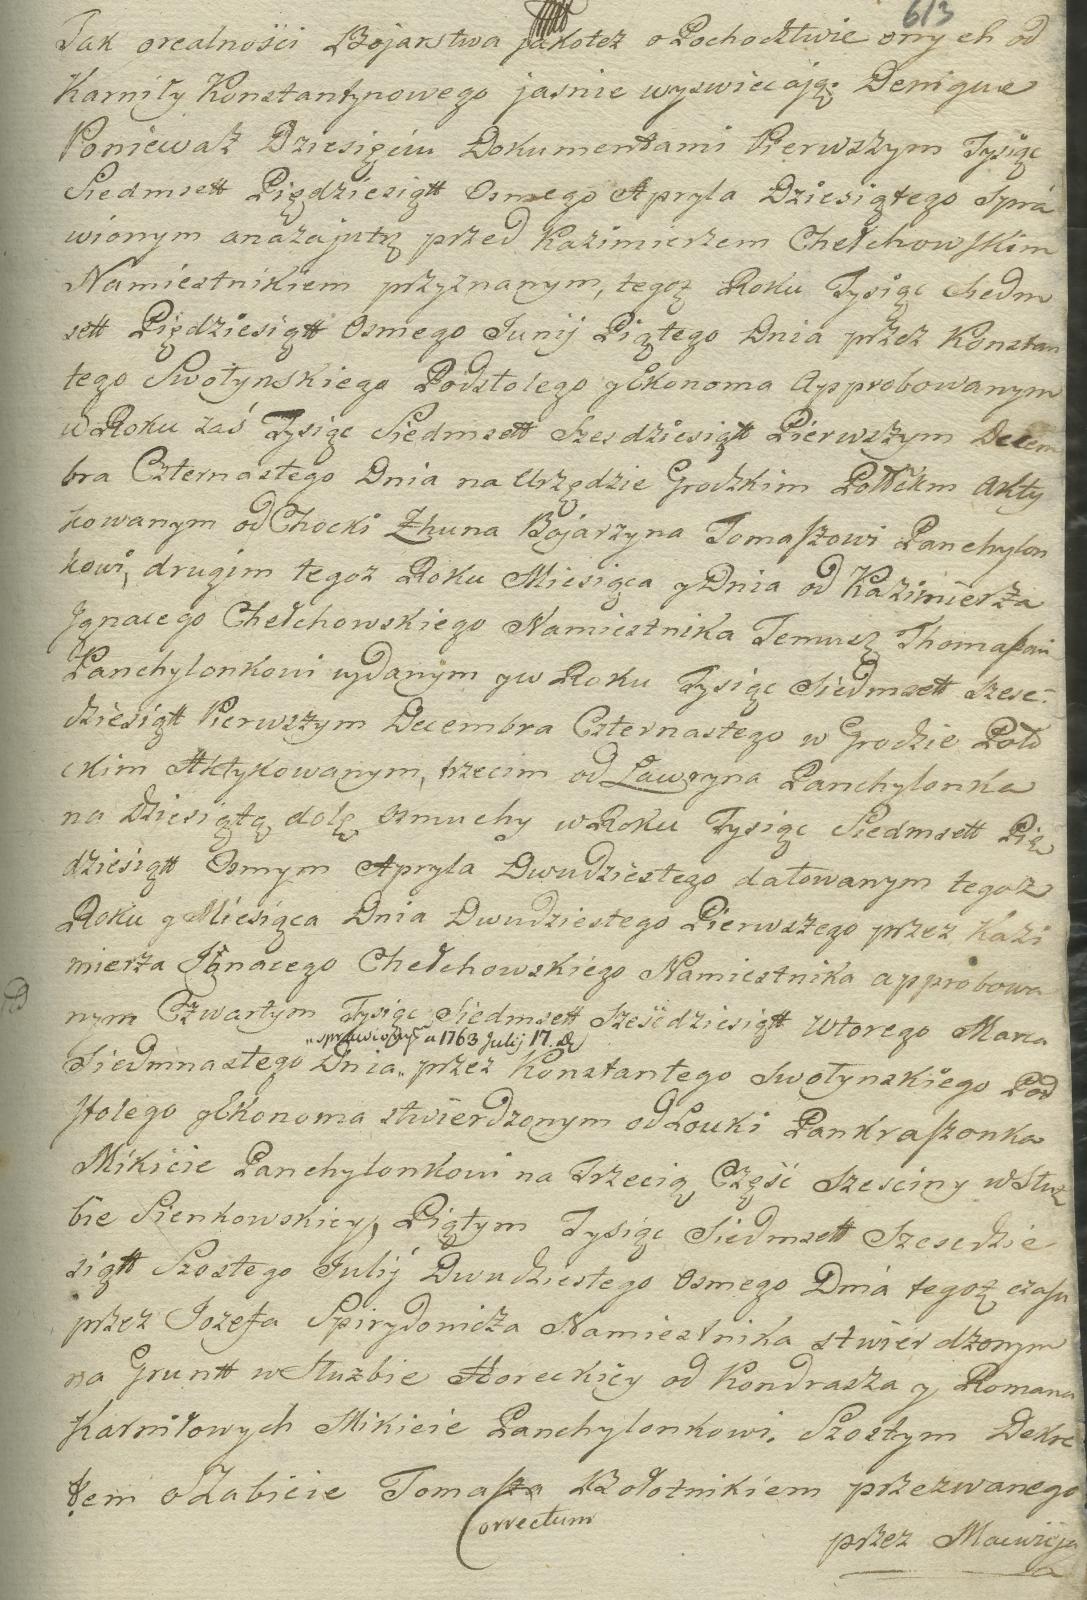 613
Tak orealności Bojarstwa jakoteż o Pochodztwie onych od
Karniły Konstantynowego jaśnie wyswiecają: Denique
Poniewaz Dziesięciu Dokumentami Pierwszym Tysiąc
Siedmsett Pięćdziesiątt Osmego Apryla Dziesiątego Sprá
wionym anazajutrz przed Kazimierzem Chełchowskim
Namiestnikiem przyznanym, tegoż Roku Tysiąc Siedm
sett Pięćdziesiątt Osmego Junij Piątego Dnia przez Konstan
tego Swołynskiego Podstolego y Ekonoma Approbowanym
w Roku zaś Tysiąc Siedmsett Szesdziesiątt Pierwszym Decem
bra Czternastego Dnia na Urzędzie Grodzkim Połłckim Akty
kowanym od Chocki Zhuna Bojarzyna Tomaszowi Panchylon
kowi, drugim tegoż Roku Miesiąca y Dnia od Kazimierza
Jgnacego Chełchowskiego Namiestnika Temusz Thomaszowi
Panchylonkowi wydanym y w Roku Tysiąc Siedmsett Szesc-
dziesiątt Pierwszym Decembra Czternastego w Grodzie Poło
ckim Aktykowanym, trzecim od Ławryna Panchylonka
na Dziesiątą dolę Osmuchy w Roku Tysiąc Siedmsett Pię
dziesiątt Osmym Apryla Dwudziestego datowanym tegoż
Roku y Miesiąca Dnia Dwudziestego Pierwszego przez Kazi
mierza Jgnacego Chełchowskiego Namiestnika approbowa
nym Czwartym Tysiąc Siedmsett Szescdziesiątt Wtorego Marca
„sprawionym a 1763 Julij 17. d
Siedmnastego Dnia„ przez Konstantego Swołynskiego Pod
stolego y Ekonoma stwierdzonym od Łouki Pankraszonka
Mikicie Panchylonkowi na Trzecią Część Szesciny w Służ
bie Sienkowskiey, Piątym Tysiąc Siedmsett Szescdzie
siątt Szostego Julij Dwudziestego Osmego Dnia tegoż czasu
przez Jozefa Spirydonicza Namiestnika stwierdzonym
na Gruntt w Służbie Horeckiey od Kondrasza y Romana
Karniłowych Mikicie Panchylonkowi. Szostym Dekre
tem o Zabicie Tomasza Bołotnikiem przezwanego
Correctum
przez Macwieja